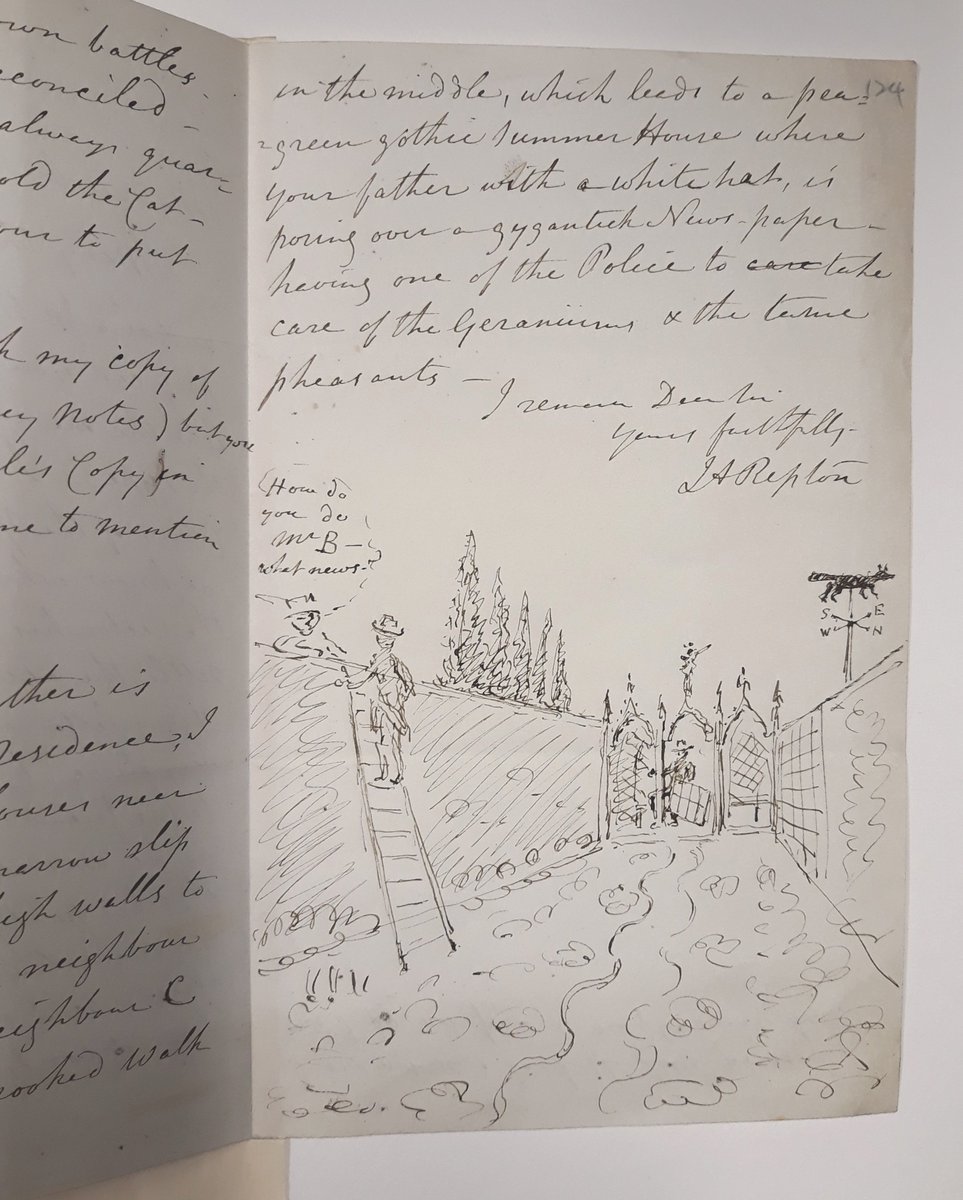 own battles -
reconciled -
always quar=
old the Cat -
our to put
my copy of
ey Notes) but your
le's Copy in
me to mention
ther is
Residence, I
houses near
narrow slip
high walls to
neighbour
neighbour C
crooked walk
124
in the middle, which leads to a pea=
=green gothic Summer House where
your father with a white hat, is
poring over a gygantick News-paper -
having one of the Police to care take
care of the Geraniums & the tame
pheasants -
I remain Dear Sir
yours faithfully -
J A Repton
How do
you do
Mr B -
what news -
S E
W N